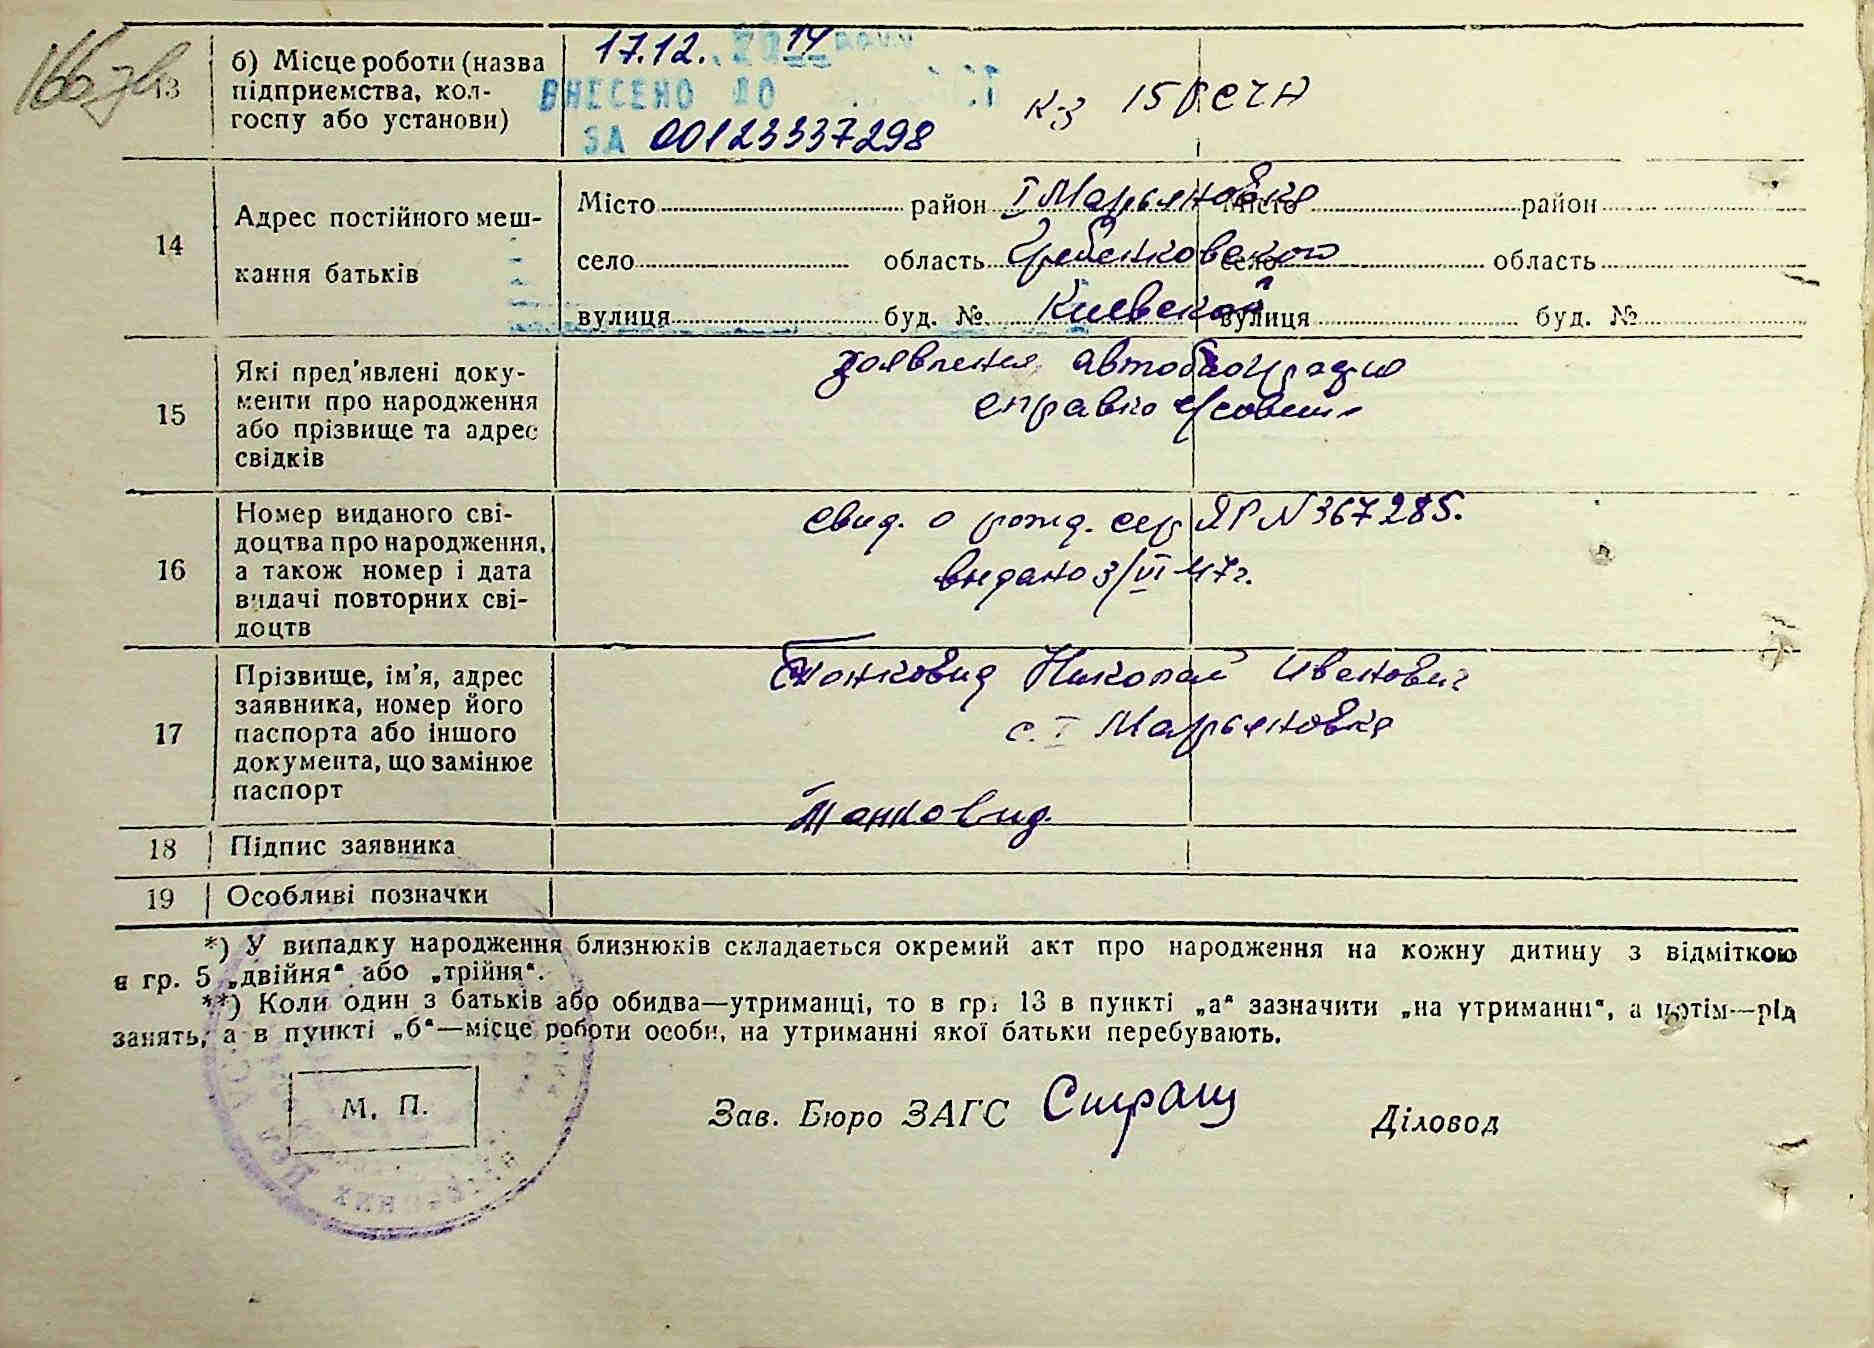 13
б) Місце роботи (назва
підприємства, кол-
госпу або установи)
17.12. 2014
ВНЕСЕНО ДО
ЗА 00123337298
к-з 15 РСЧА
14
Адрес постійного меш-
кання батьків
Місто район I Марьяновка Місто район
село область Гребенковского село область
вулиця буд. № Киевской вулиця буд. №
15
Які пред'явлені доку-
менти про народження
або прізвище та адрес
свідків
заявления, автобиография
справка с/совета
16
Номер виданого сві-
доцтва про народження,
а також номер і дата
видачі повторних сві-
доцтв
Свид. о рожд. сер ЯР N 367285.
выдано 3/VI-47г.
17
Прізвище, ім'я, адрес
заявника, номер його
паспорта або іншого
документа, що замінює
паспорт
Танковид Николай Иванович
с. I Марьяновка
18
Підпис заявника
Танковид
19
Особливі позначки
*) У випадку народження близнюків складається окремий акт про народження на кожну дитину з відміткою
в гр. 5 „двійня“ або „трійня“.
**) Коли один з батьків або обидва—утриманці, то в гр. 13 в пункті „а“ зазначити „на утриманні“, а потім—рід
занять, а в пункті „б“—місце роботи особи, на утриманні якої батьки перебувають.
М. П.
Зав. Бюро ЗАГС
Діловод